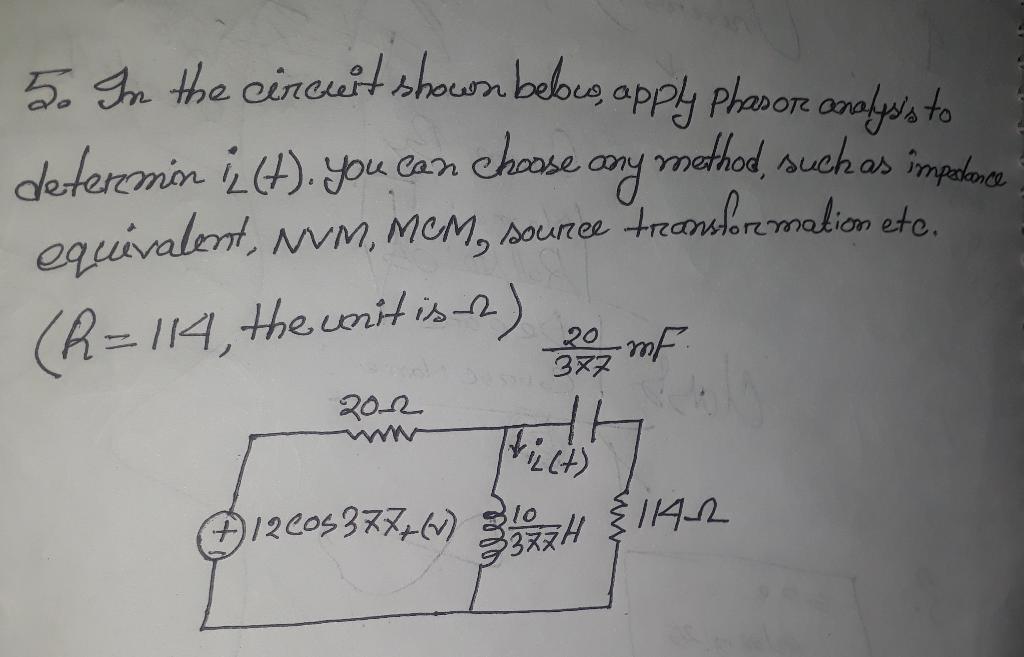 5. In the circuit shown below, apply phasor analysis to
determin i_L(t). You can choose any method, such as impedance
equivalent, NVM, MCM, source transformation etc.
(R = 114, the unit is Ω)
20/377 mF
20Ω
i_L(t)
+ 12cos377t (v)
10/377 H
114Ω